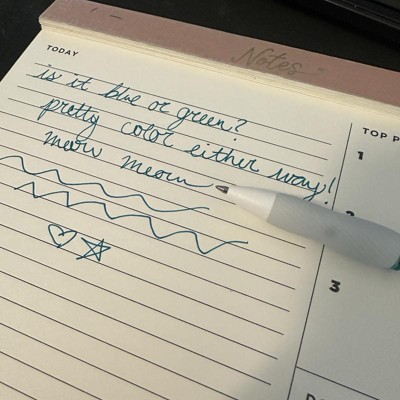 Notes
TODAY
is it blue or green?
pretty color either way!
meow meow
TOP P
1
2
3